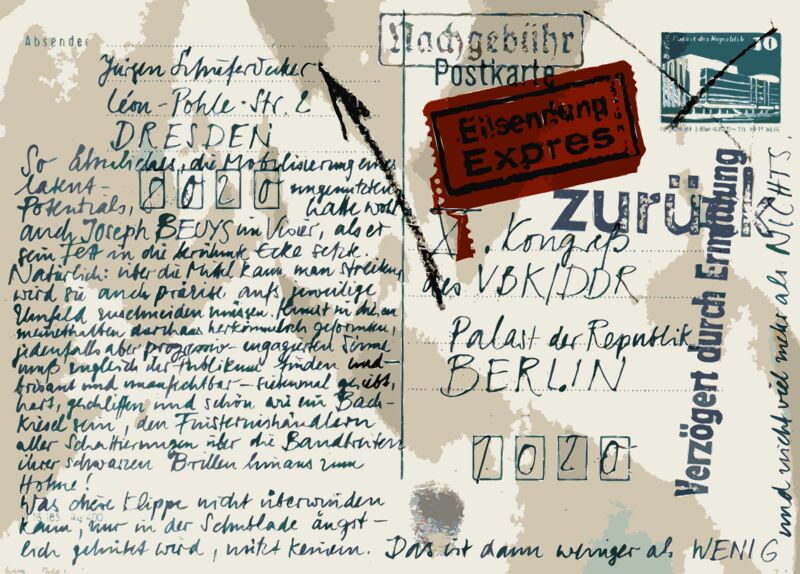 Absender
Jürgen Schieferdecker
Léon-Pohle-Str. 2
DRESDEN
8020
So Ähnliches, die Mobilisierung eines
latent-
ungenutzten
Potentials, hatte wohl
auch Joseph BEUYS im Visier, als er
sein Fett in die berühmte Ecke setzte.
Natürlich: über die Mittel kann man streiten
wird sie auch präzise aufs jeweilige
Umfeld zuschneiden müssen. Kunst in die, en
meinethalben durchaus herkömmlich geformten,
jedenfalls aber progressiv-engagierten Sinne
muß zugleich der Publikum finden und
brisant und unanfechtbar – siebenmal gesiebt,
hart, geschliffen und schön wie ein Bach-
kiesel sein, den Finsternishändlern
aller Schattierungen über die Bandbreiten
ihrer schwarzen Brillen hinaus zum
Hohne!
Was diese Klippe nicht überwinden
kann, nur in der Schublade ängst-
lich gehütet wird, nützt keinem. Das ist dann weniger als WENIG
und nicht viel mehr als NICHTS.
Nachgebühr
Postkarte
Palast der Republik
10
Eilsendung
Expres
zurück
Verzögert durch Ermittlung
X. Kongreß
des VBK/DDR
Palast der Republik
BERLIN
1020